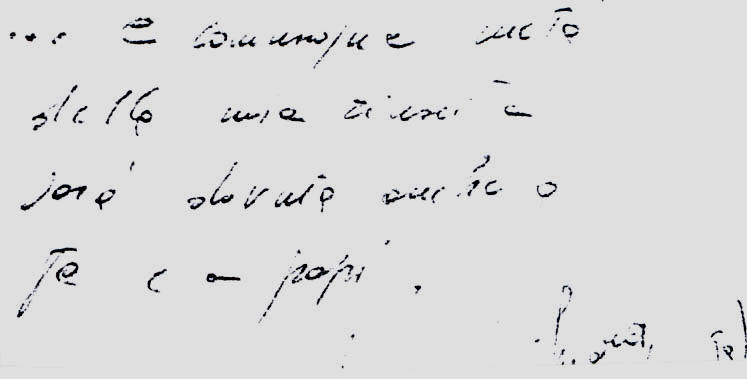 ... e comunque metà
della mia riuscita
sarà dovuta anche a
te e a papi.